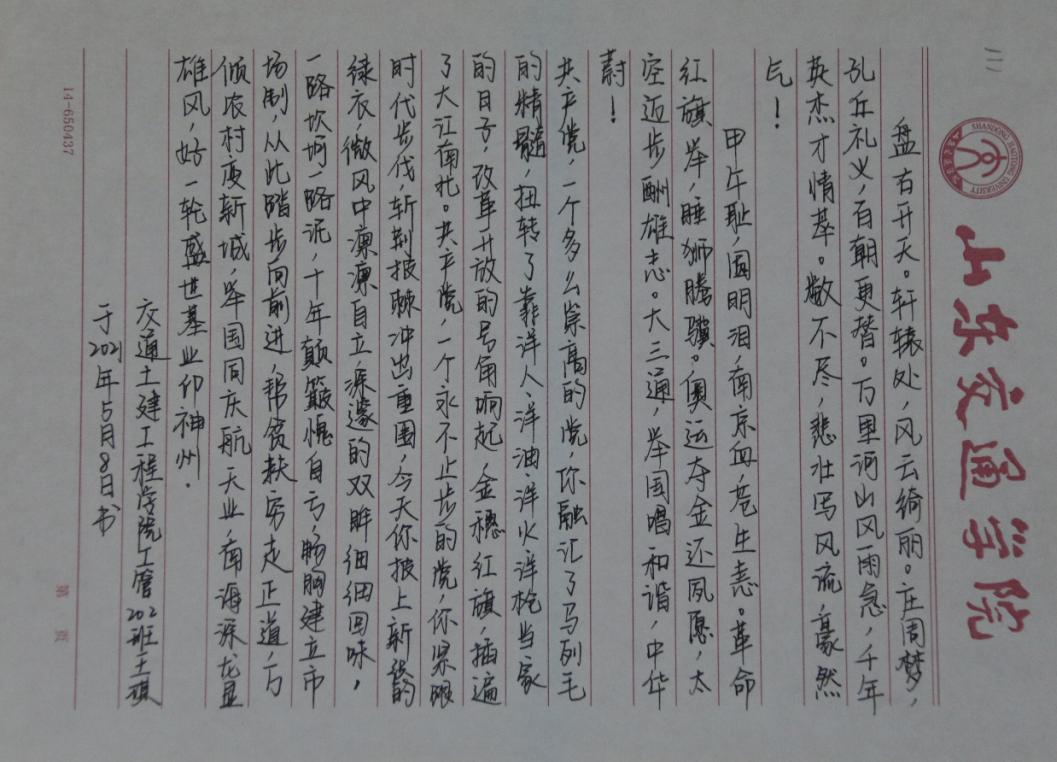 山东交通学院
SHANDONG JIAOTONG UNIVERSITY
二
盘古开天。轩辕处，风云绮丽。庄周梦，
孔丘礼义，百朝更替。万里河山风雨急，千年
英杰才情基。欺不尽，悲壮写风流，豪然
气！
甲午耻，圆明泪，南京血，苍生恚。革命
红旗举，睡狮腾骥。奥运夺金还夙愿，太
空迈步酬雄志。大三通，举国唱和谐，中华
蔚！
共产党，一个多么崇高的党，你融汇了马列毛
的精髓，扭转了靠洋人、洋油、洋火洋枪当家
的日子，改革开放的号角响起，金穗红旗，插遍
了大江南北。共产党，一个永不止步的党，你紧跟
时代步伐，斩荆披棘冲出重围，今天你披上新装的
绿衣，微风中凛凛自立，深邃的双眸细细回味，
一路坎坷一路泥，十年颠簸愧自亏，畅胸建立市
场制，从此踏步向前进，帮贫扶穷走正道，万
倾农村变新城，举国同庆航天业，南海深龙显
雄风，好一轮盛世基业仰神州.
交通土建工程学院工管202班王琪
于2021年5月8日书
14-650437
第 页